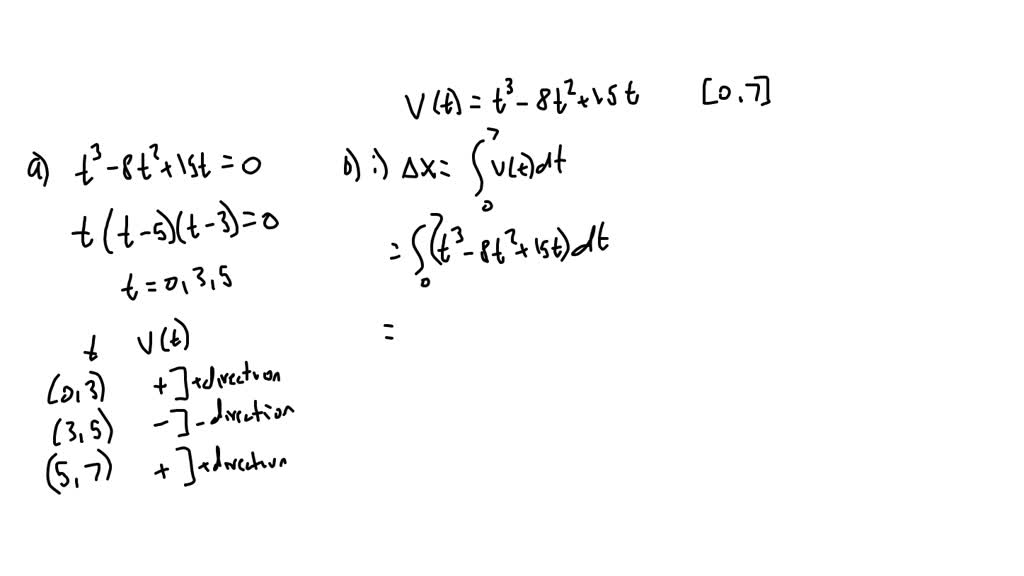 V(t) = t³ - 8t² + 15t [0,7]
a) t³ - 8t² + 15t = 0
t(t-5)(t-3) = 0
t = 0, 3, 5
t V(t)
(0,3) + ] + direction
(3,5) - ] - direction
(5,7) + ] + direction
b) i) Δx = ∫₀⁷ v(t)dt
= ∫₀⁷ (t³ - 8t² + 15t)dt
=